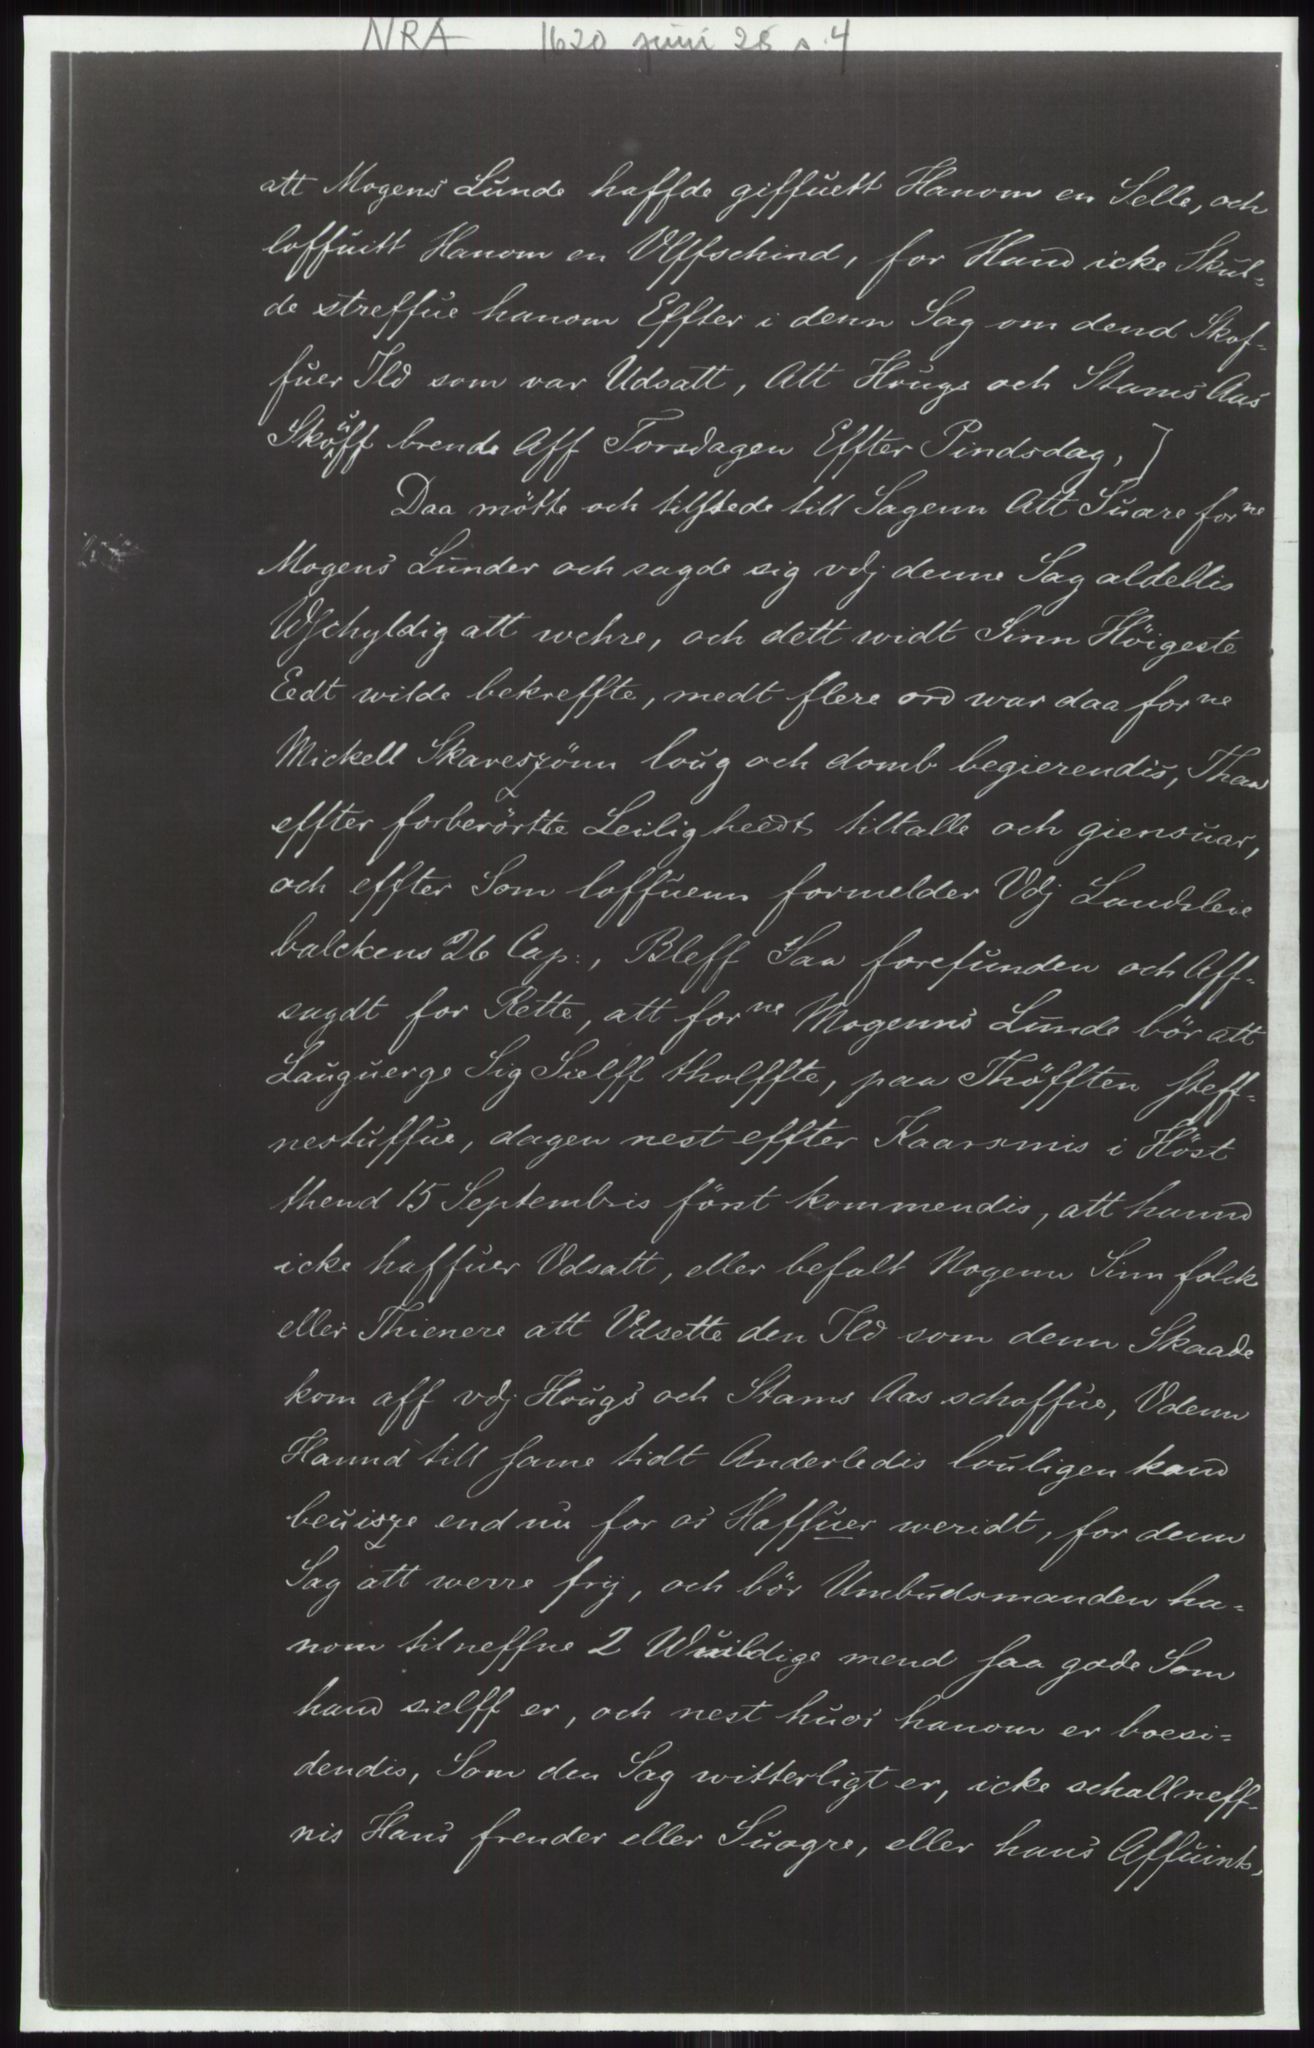 NRA 1620 juni 28 s. 4
att Mogens Lunde haffde giffuett Hanom en Selle, och
loffuitt Hanom en Ulffschind, for Hand icke Skul-
de streffue hanom Effter i denn Sag om dend Skof-
fuer Ild som var Udsatt, Att Hougs och Stams Aas
Skouff brende Aff Torsdagen Effter Pindsdag,]
Daa mötte och tilstede till Sagenn Att Suare for ne
Mogens Lunder och sagde sig vdj denne Sag aldellis
Uschyldig att wehre, och dett widt Sinn Höigeste
Eedt wilde bekreffte, medt flere ord war daa for ne
Mickell Skaveszönn loug och domb begierendis, Thaa
effter forberörtte Leiligheedt tiltalle och giensuar,
och effter Som loffuenn formelder Vdj Landsleie
balckens 26 Cap:, Bleff Saa forefunden och Aff-
sagdt for Rette, att for ne Mogenns Lunde bör att
Lauguerge Sig Sielff tholffte, paa Thöfften steff-
nestuffue, dagen nest effter Kaarsmis i Höst
thend 15 Septembris först kommendis, att hannd
icke haffuer Vdsatt, eller befalt Nogenn Sinn folck
eller Thienere att Vdsette den Ild som denn Skaade
kom aff vdj Hougs och Stams Aas schoffue, Vdenn
Hannd till same tidt Anderledis louligen kand
beuisze end nu for os Haffuer weridt, for denn
Sag att werre frij, och bör Umbudsmanden ha-
nom tilneffne 2 Wuildige mend saa gode Som
hand sielff er, och nest huos hanom er boesi-
dendis, Som den Sag witterligt er, icke schall neff-
nis Hans frender eller Suogre, eller hans Affuints,